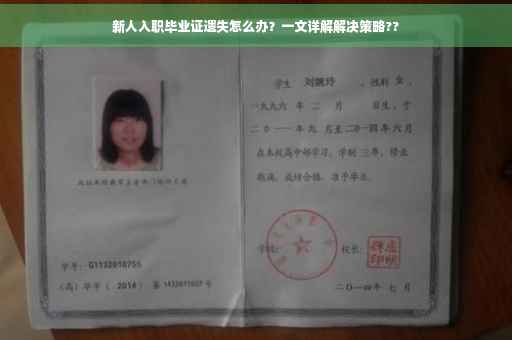 新人入职毕业证遗失怎么办？一文详解解决策略??
学生 刘婉玲 ，性别 女 ，
一九九六 年 二 月 日生，于
二〇一一年九 月至二〇一四年 六月
在本校高中部学习，学制 三年，修业
期满，成绩合格，准予毕业。
学校： 校长：
学号：G1132010755
（高）毕字（ 2014 ）第 1432011027 号
二〇一四年 七 月